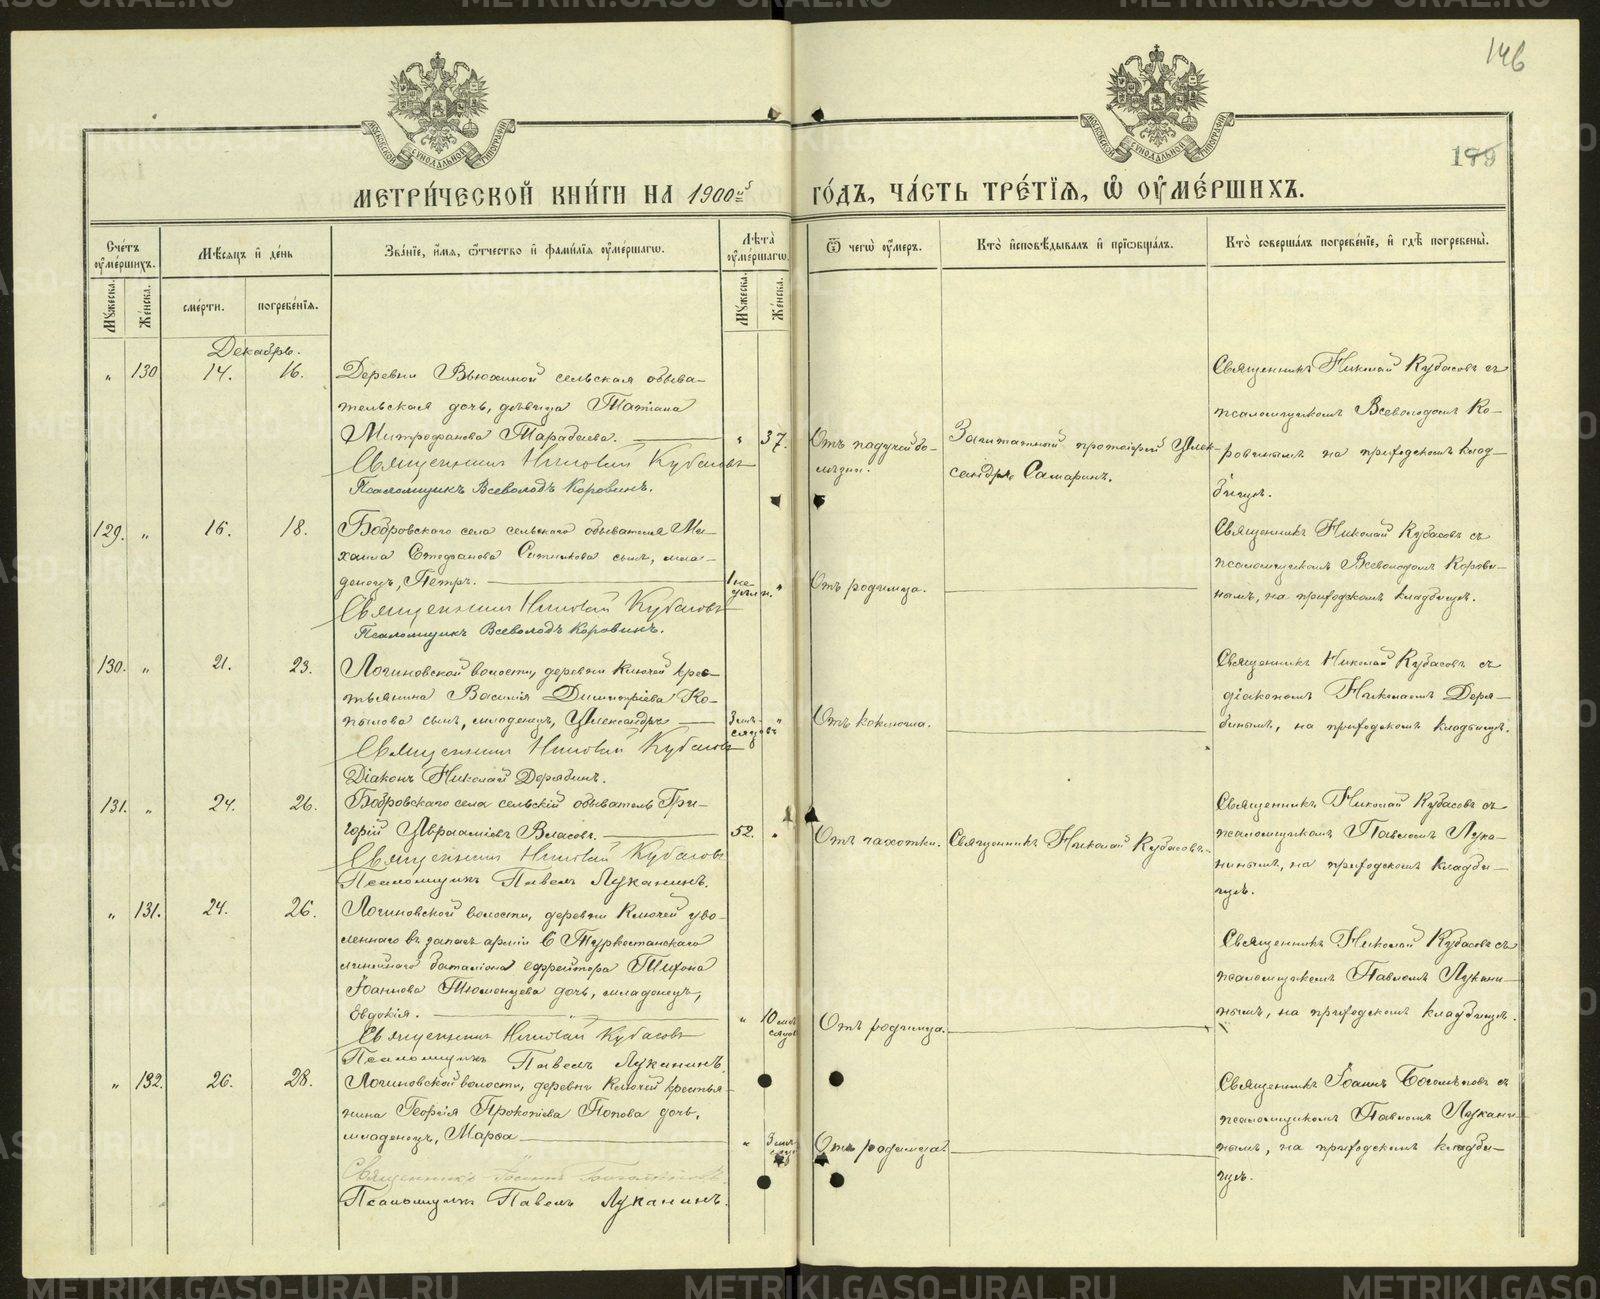 146
179
МЕТРИ́ЧЕСКОЙ КНИ́ГИ НА 1900й ГО́ДЪ, ЧА́СТЬ ТРЕ́ТІѦ, Ѡ҆ ОУ҆МЕ́РШИХЪ.
Сче́тъ оу҆ме́ршихъ.
Мꙋжеска.
Же́нска.
Мѣ́сѧцъ и҆ де́нь
сме́рти.
погребе́нїѧ.
Зва́нїе, и҆́мѧ, ѻ҆́тчество и҆ фами́лїѧ оу҆ме́ршагѡ.
Лѣ́та оу҆ме́ршагѡ.
Мꙋжеска.
Же́нска.
Ѿ чегѡ̀ оу҆́меръ.
Кто̀ и҆сповѣ́дывалъ и҆ прїѡбща́лъ.
Кто̀ соверша́лъ погребе́нїе, и҆ гдѣ̀ погребены̀.
Декабрь.
„ 130 14. 16.
Деревни Вьюхиной сельская обыва-
тельская дочь, дѣвица Татіана
Митрофанова Тарабаева.
„ 37.
Священникъ Николай Кубасовъ
Псаломщикъ Всеволодъ Коровинъ.
Отъ падучей бо-
лѣзни.
Заштатный протоіерей Алек-
сандръ Самаринъ.
Священникъ Николай Кубасовъ съ
псаломщикомъ Всеволодомъ Ко-
ровинымъ на приходскомъ клад-
бищѣ.
129. „ 16. 18.
Бобровскаго села сельскаго обывателя Ми-
хаила Стефанова Ситникова сынъ, мла-
денецъ, Петръ.
1 не-
дѣли. „
Священникъ Николай Кубасовъ
Псаломщикъ Всеволодъ Коровинъ.
Отъ родимца.
Священникъ Николай Кубасовъ съ
псаломщикомъ Всеволодомъ Корови-
нымъ, на приходскомъ кладбищѣ.
130. „ 21. 23.
Логиновской волости, деревни Ключей крес-
тьянина Василія Димитріева Ко-
пылова сынъ, младенецъ, Александръ
3 мѣ-
сяцовъ „
Священникъ Николай Кубасовъ
Діаконъ Николай Дерябинъ.
Отъ коклюша.
Священникъ Николай Кубасовъ съ
діакономъ Николаемъ Деря-
бинымъ, на приходскомъ кладбищѣ.
131. „ 24. 26.
Бобровскаго села сельскій обыватель Гри-
горій Аврааміевъ Власовъ.
52. „
Священникъ Николай Кубасовъ
Псаломщикъ Павелъ Луканинъ.
Отъ чахотки.
Священникъ Николай Кубасовъ.
Священникъ Николай Кубасовъ съ
псаломщикомъ Павломъ Лука-
нинымъ, на приходскомъ кладби-
щѣ.
„ 131. 24. 26.
Логиновской волости, деревни Ключей уво-
леннаго въ запасъ арміи 6 Туркестанскаго
линейнаго баталіона ефрейтора Тихона
Іоаннова Тюменцева дочь, младенецъ,
Евдокія.
„ 10 мѣ-
сяцовъ
Священникъ Николай Кубасовъ
Псаломщикъ Павелъ Луканинъ.
Отъ родимца.
Священникъ Николай Кубасовъ съ
псаломщикомъ Павломъ Лукани-
нымъ, на приходскомъ кладбищѣ.
„ 132. 26. 28.
Логиновской волости, деревни Ключей крестья-
нина Георгія Прокопіева Попова дочь,
младенецъ, Марѳа
„ 3 мѣ-
Священникъ Іоаннъ Богомѣловъ
Псаломщикъ Павелъ Луканинъ.
Отъ родимца.
Священникъ Іоаннъ Богомѣловъ съ
псаломщикомъ Павломъ Лукани-
нымъ, на приходскомъ кладби-
щѣ.
METRIKI.GASO-URAL.RU